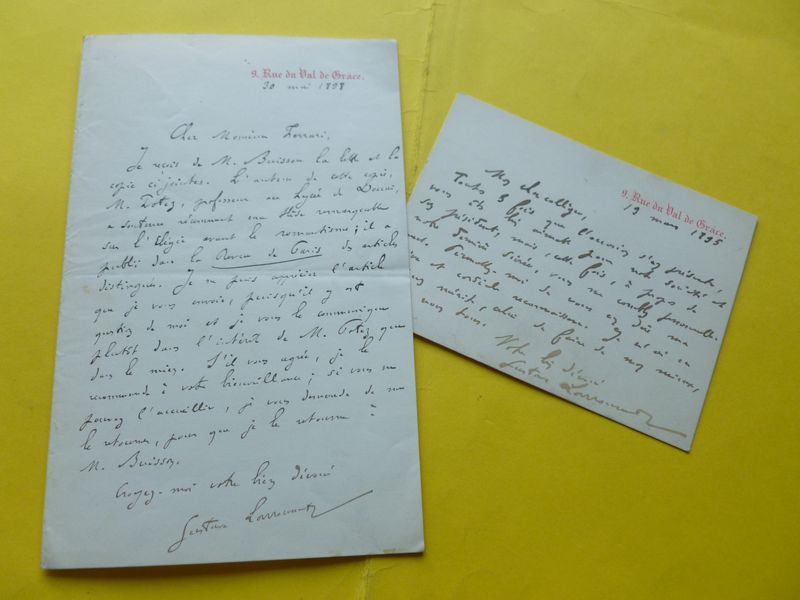 9. Rue du Val de Grâce.
30 mai 1898
Cher Monsieur Ferrari,
Je reçois de M. Buisson la lettre et la
copie ci-jointes. L'auteur de cette copie,
M. Potez, professeur au Lycée de Douai,
a soutenu récemment une thèse remarquable
sur l'Élégie avant le romantisme ; il a
publié dans la Revue de Paris des articles
distingués. Je ne puis apprécier l'article
que je vous envoie, puisqu'il y est
question de moi et je vous le communique
plutôt dans l'intérêt de M. Potez que
dans le mien. S'il vous agrée, je le
recommande à votre bienveillance ; si vous ne
pouvez l'accueillir, je vous demande de me
le retourner, pour que je le retourne à
M. Buisson.
Croyez-moi votre bien dévoué
Gustave Larroumet
9. Rue du Val de Grâce.
19 mars 1895
Mon cher collègue,
Toutes les fois que l'occasion s'est présentée,
vous avez été bien aimable pour notre société et
son président, mais, cette fois, à propos de
notre dernière soirée, vous me comblez personnellement.
Permettez-moi de vous en dire ma
et cordiale reconnaissance. Je n'ai en
mérité, celui de faire de mon mieux,
nous tous.
Votre bien dévoué
Gustave Larroumet